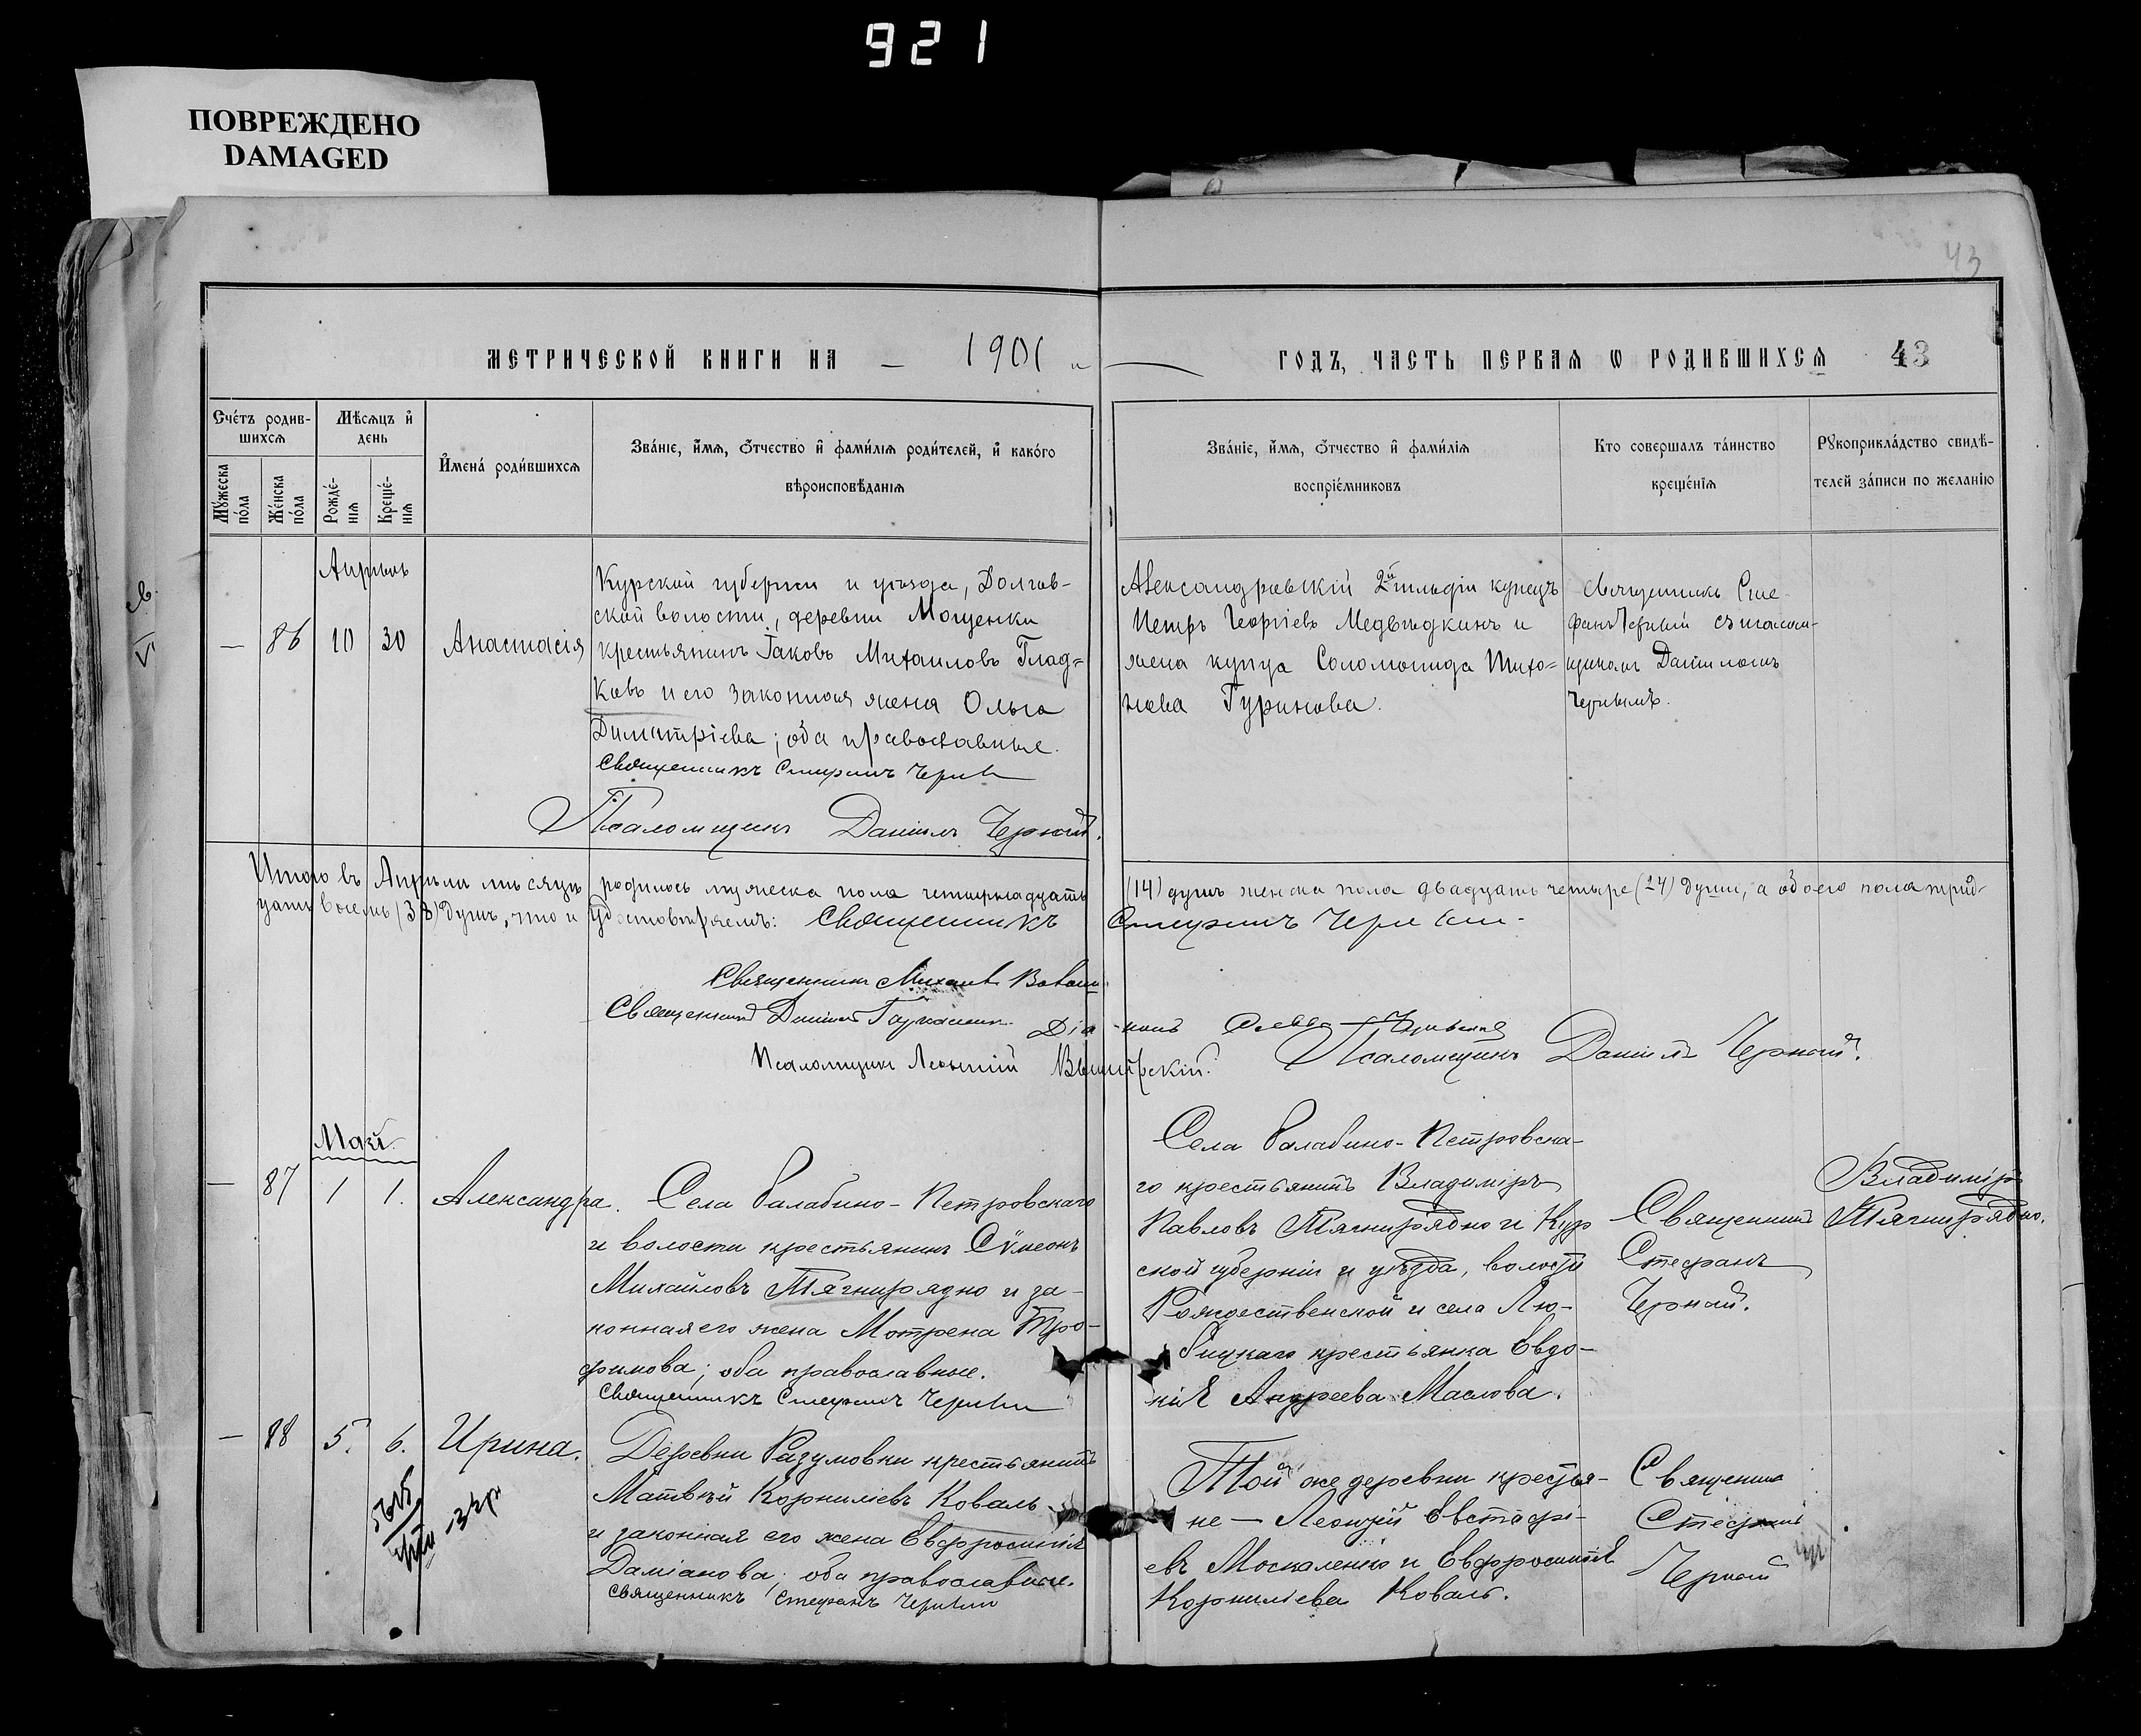 921
ПОВРЕЖДЕНО
DAMAGED
43
МЕТРИЧЕСКОЙ КНИГИ НА — 1901
ГОДЪ, ЧАСТЬ ПЕРВАЯ Ѡ РОДИВШИХСѦ 43
Сче́тъ родив-
шихсѧ
Мѣсѧцъ и҆
день
Мꙋжеска по́ла
Же́нска по́ла
Рожде́-нїѧ
Креще́-нїѧ
И҆мена̀ роди́вшихсѧ
Зва́нїе, и҆́мѧ, ѻ҆́тчество и҆ фами́лїѧ роди́телей, и҆ како́го
вѣроисповѣ́данїѧ
Зва́нїе, и҆́мѧ, ѻ҆́тчество и҆ фами́лїѧ
воспрїе́мниковъ
Кто соверша́лъ та́инство
креще́нїѧ
Рꙋкоприкла́дство свидѣ́-
телей за́писи по жела́нїю
Апрѣль
— 86 10 30 Анастасія
Курской губерніи и уѣзда, Долгов-
ской волости, деревни Мощенки
крестьянинъ Іаковъ Михаиловъ Глад-
ковъ и его законная жена Ольга
Димитріева; оба православные.
Священникъ Стефанъ Черный
Псаломщикъ Даніилъ Черный.
Александровскій 2й гильдіи купецъ
Петръ Георгіевъ Медвѣдкинъ и
жена купца Соломонида Тихо-
нова Гуринова.
Священникъ Сте-
фанъ Черный съ псалом-
щикомъ Даніиломъ
Чернымъ.
Итого въ Апрѣлѣ мѣсяцѣ родилось мужеска пола четырнадцать (14) душъ женска пола двадцать четыре (24) души, а обоего пола трид-
цать восемь (38) душъ, что и удостовѣряемъ: Священникъ Стефанъ Черный
Священникъ Михаилъ
Священникъ Даніилъ
Діаконъ
Псаломщикъ Леонтій
Псаломщикъ Даніилъ Черный.
Май.
— 87 1 1. Александра.
Села Балабино-Петровскаго
и волости крестьянинъ Сѵмеонъ
Михайловъ Тягнирядно и за-
конная его жена Мотрена Тро-
фимова; оба православные.
Священникъ Стефанъ Черный
Села Балабино-Петровска-
го крестьянинъ Владиміръ
Павловъ Тягнирядно и Кур
ской губерніи и уѣзда, волости
Рождественской и села Лю-
бицкаго крестьянка Евдо-
кія Андреева Маслова.
Священникъ
Стефанъ
Черный.
Владиміръ
Тягнирядно.
— 88 5. 6. Ирина.
Деревни Разумовки крестьянинъ
Матвѣй Корниліевъ Коваль
и законная его жена Евфросинія
Даміанова; оба православные.
Священникъ Стефанъ Черный
Той же деревни крестья-
не — Леонтій Евстафі-
евъ Москаленко и Евфросинія
Корниліева Коваль.
Священникъ
Стефанъ
Черный